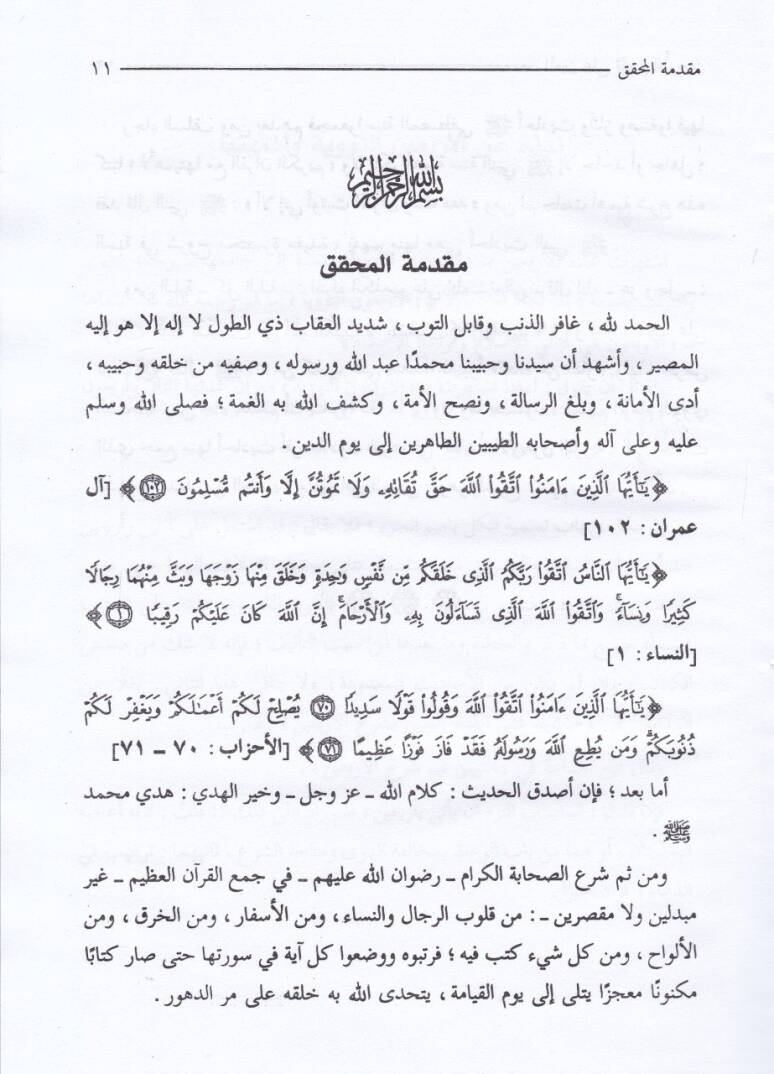 مقدمة المحقق ١١
بسم الله الرحمن الرحيم
مقدمة المحقق
الحمد لله ، غافر الذنب وقابل التوب ، شديد العقاب ذي الطول لا إله إلا هو إليه
المصير ، وأشهد أن سيدنا وحبيبنا محمدًا عبد الله ورسوله ، وصفيه من خلقه وحبيبه ،
أدى الأمانة ، وبلغ الرسالة ، ونصح الأمة ، وكشف الله به الغمة ؛ فصلى الله وسلم
عليه وعلى آله وأصحابه الطيبين الطاهرين إلى يوم الدين .
﴿ يَٰٓأَيُّهَا ٱلَّذِينَ ءَامَنُوا۟ ٱتَّقُوا۟ ٱللَّهَ حَقَّ تُقَاتِهِۦ وَلَا تَمُوتُنَّ إِلَّا وَأَنتُم مُّسْلِمُونَ ١٠٢ ﴾ [آل
عمران : ١٠٢]
﴿ يَٰٓأَيُّهَا ٱلنَّاسُ ٱتَّقُوا۟ رَبَّكُمُ ٱلَّذِى خَلَقَكُم مِّن نَّفْسٍ وَٰحِدَةٍ وَخَلَقَ مِنْهَا زَوْجَهَا وَبَثَّ مِنْهُمَا رِجَالًا
كَثِيرًا وَنِسَآءً ۚ وَٱتَّقُوا۟ ٱللَّهَ ٱلَّذِى تَسَآءَلُونَ بِهِۦ وَٱلْأَرْحَامَ ۚ إِنَّ ٱللَّهَ كَانَ عَلَيْكُمْ رَقِيبًا ١ ﴾
[النساء : ١]
﴿ يَٰٓأَيُّهَا ٱلَّذِينَ ءَامَنُوا۟ ٱتَّقُوا۟ ٱللَّهَ وَقُولُوا۟ قَوْلًا سَدِيدًا ٧٠ يُصْلِحْ لَكُمْ أَعْمَٰلَكُمْ وَيَغْفِرْ لَكُمْ
ذُنُوبَكُمْ ۗ وَمَن يُطِعِ ٱللَّهَ وَرَسُولَهُۥ فَقَدْ فَازَ فَوْزًا عَظِيمًا ٧١ ﴾ [الأحزاب : ٧٠ ـ ٧١]
أما بعد ؛ فإن أصدق الحديث : كلام الله ـ عز وجل ـ وخير الهدي : هدي محمد
ﷺ .
ومن ثم شرع الصحابة الكرام ـ رضوان الله عليهم ـ في جمع القرآن العظيم ـ غير
مبدلين ولا مقصرين ـ : من قلوب الرجال والنساء ، ومن الأسفار ، ومن الخرق ، ومن
الألواح ، ومن كل شيء كتب فيه ؛ فرتبوه ووضعوا كل آية في سورتها حتى صار كتابًا
مكنونًا معجزًا يتلى إلى يوم القيامة ، يتحدى الله به خلقه على مر الدهور .